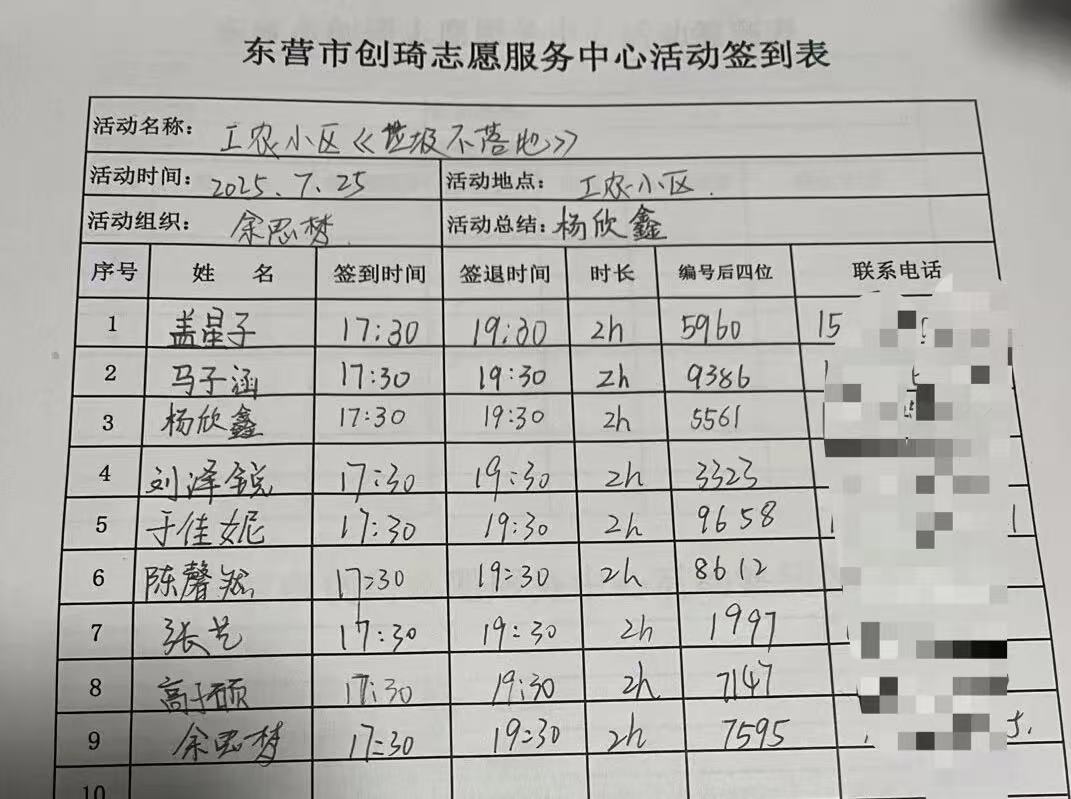 东营市创琦志愿服务中心活动签到表
活动名称: 工农小区《垃圾不落地》
活动时间: 2025.7.25 活动地点: 工农小区.
活动组织: 余思梦 活动总结: 杨欣鑫
序号 姓名 签到时间 签退时间 时长 编号后四位 联系电话
1 盖星子 17:30 19:30 2h 5960 15
2 马子涵 17:30 19:30 2h 9386
3 杨欣鑫 17:30 19:30 2h 5561
4 刘泽锐 17:30 19:30 2h 3323
5 于佳妮 17:30 19:30 2h 9658
6 陈馨 17:30 19:30 2h 8612
7 张艺 17:30 19:30 2h 1997
8 高子硕 17:30 19:30 2h 7147
9 余思梦 17:30 19:30 2h 7595
10